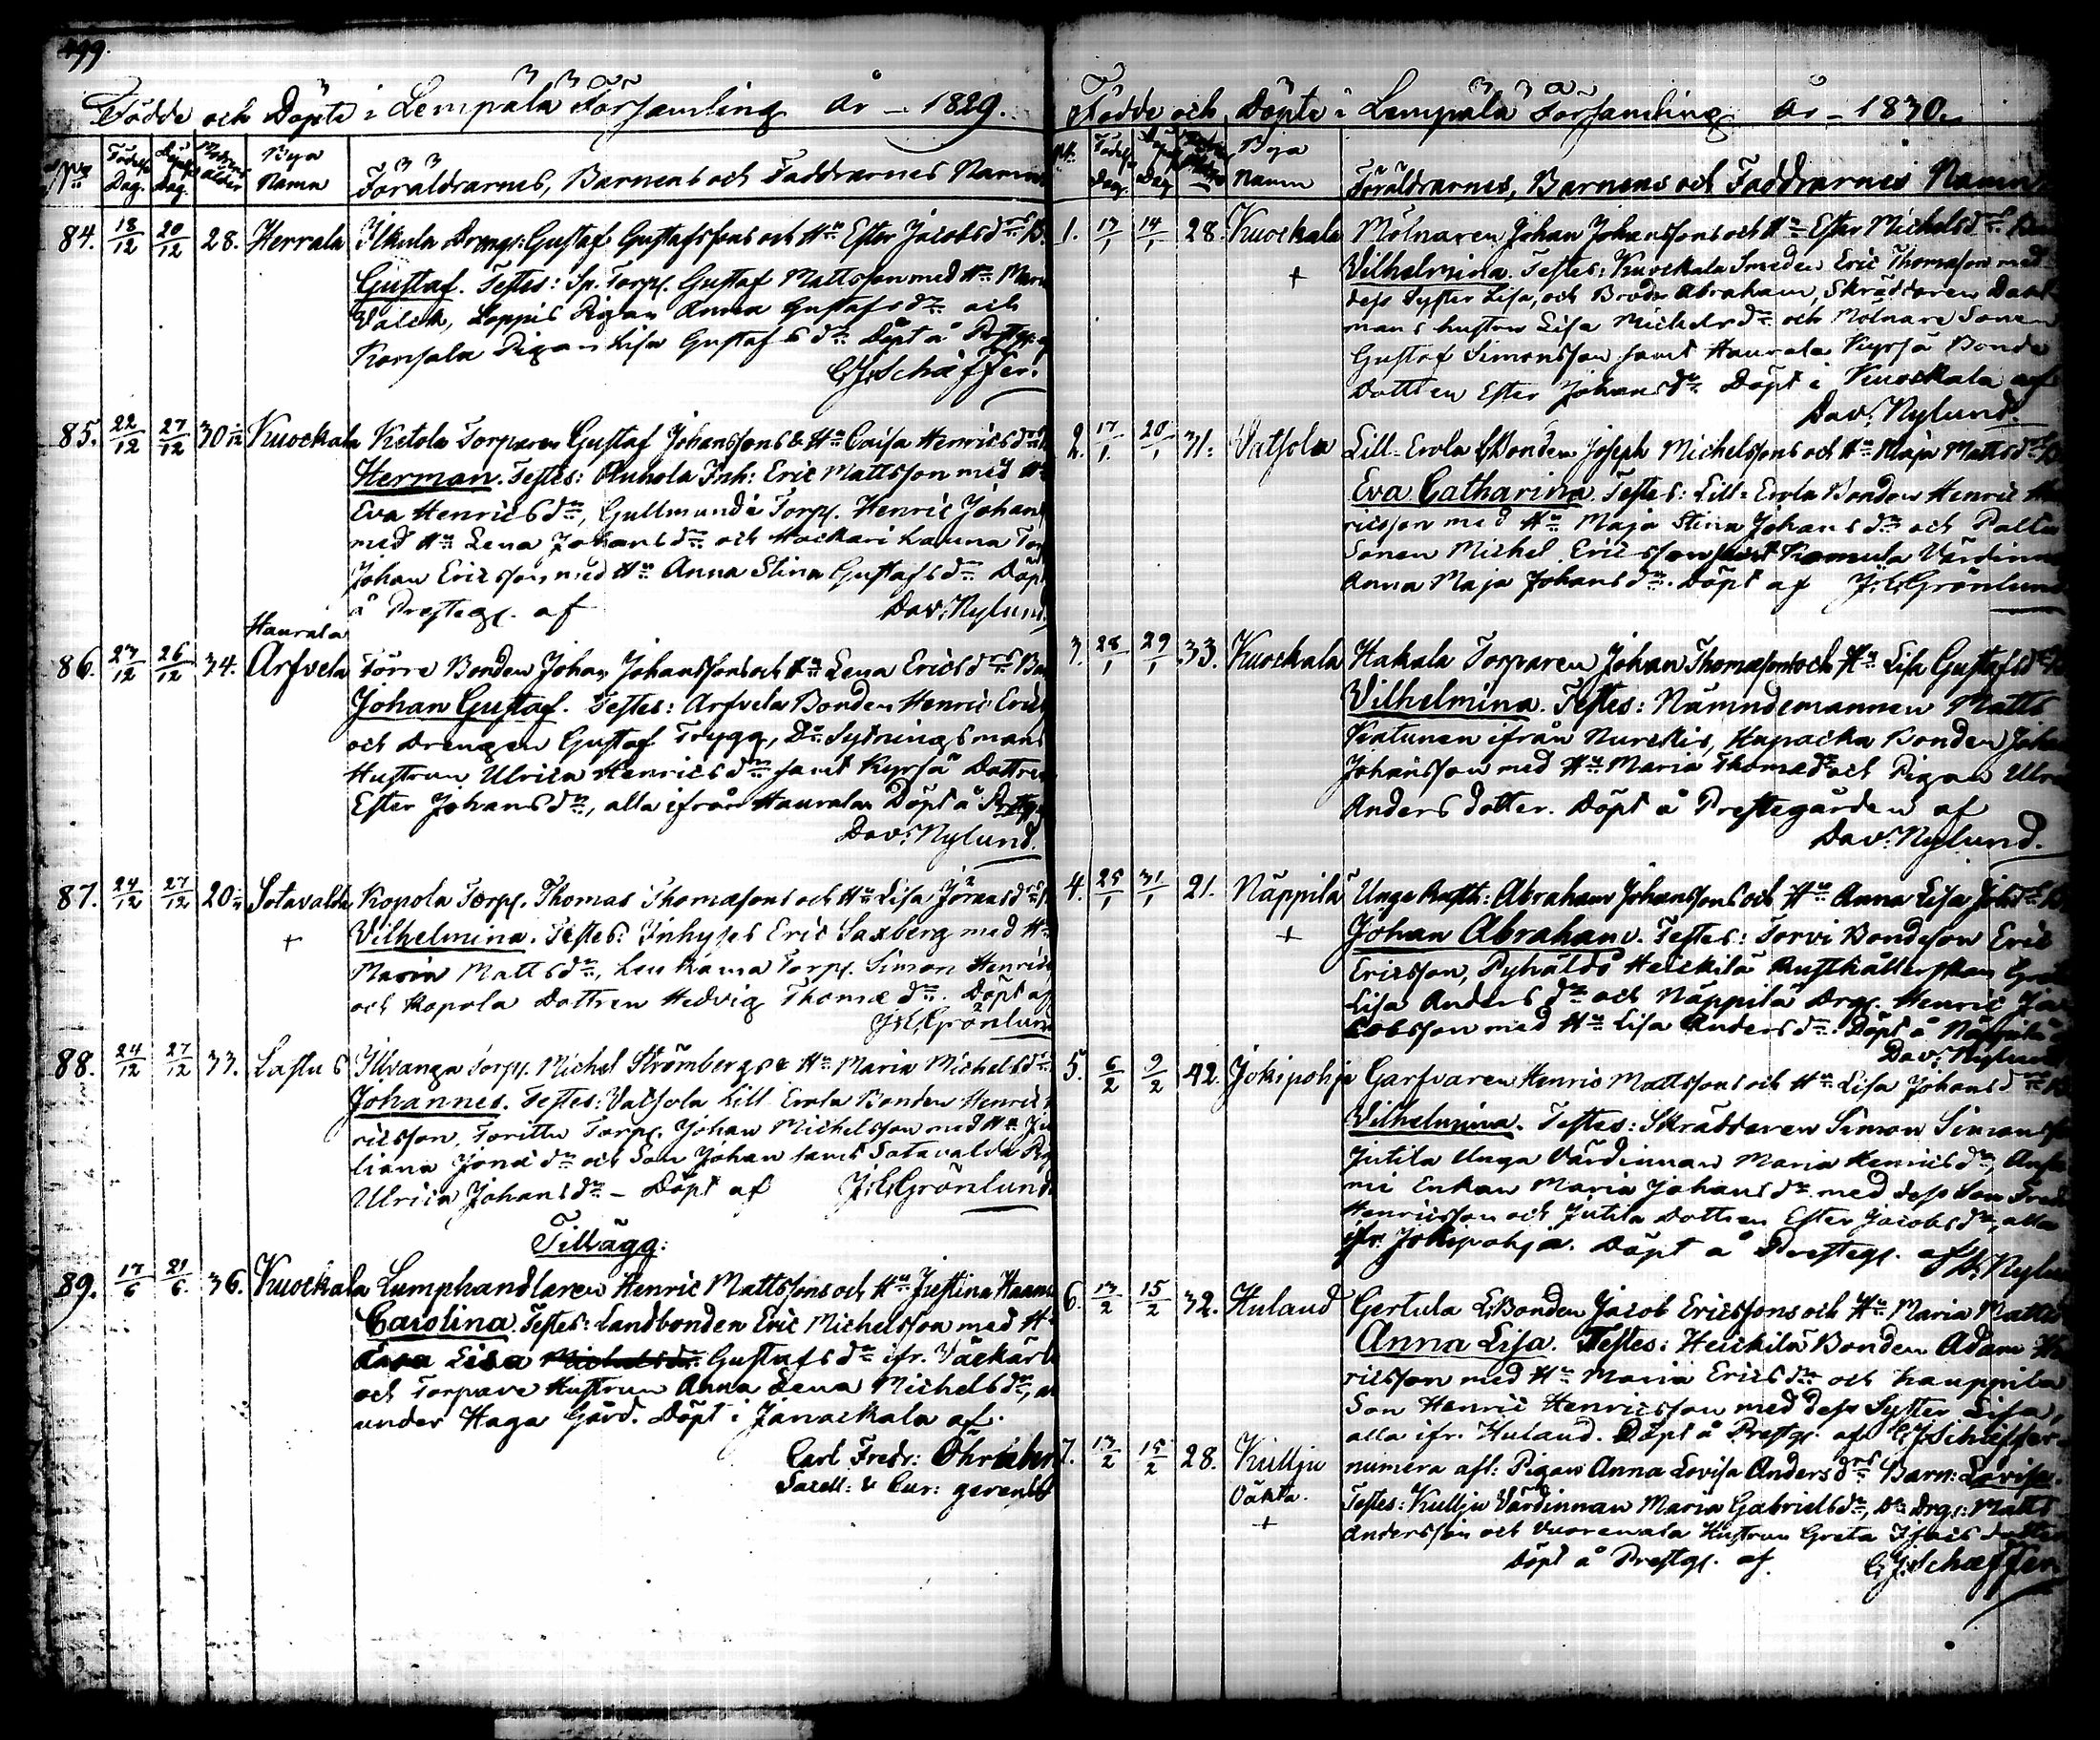 499.
Födde och Döpte i Lempälä Församling År - 1829.
No Födelse Dag. Döpelse Dag. Modrens ålder Bya Namn Föräldrarnes, Barnens och Faddrarnes Namn
84. 18/12 20/12 28. Herrala Ilkula Drengs: Gustaf Gustafssons och Hu Ester Jacobsdrs B.
Gustaf. Testes: Sp. Torp. Gustaf Mattsson med Hu Maria
Valck, Loppis Pigan Anna Gustafsdr och
Konsala Pigan Lisa Gustafsdr Döpt å Prestg. af
C.J. Schæffer.
85. 22/12 27/12 30 Kuockala Ketola Torparen Gustaf Johanssons & Hu Caisa Henricsdrs
Herman. Testes: Anhola Inh: Eric Mattsson med Hu
Eva Henricsdr, Gullmunds Torp. Henric Johans
med Hu Lena Johansdr och Hockari Launa Torp
Johan Ericsson med Hu Anna Stina Gustafsdr Döpt
å Presteg. af Dav: Nylund.
Haurala
86. 23/12 26/12 34. Arfvela Förre Bonden Johan Johanssons och Hu Lena Ericsdrs Barn
Johan Gustaf. Testes: Arfvela Bonden Henric Erics
och Drengen Gustaf Trygg, Do Sytningsmans
Hustrun Ulrica Henricsdr samt Kyrsä Dottren
Ester Johansdr, alla ifrån Haurala. Döpt å Prestg.
Dav: Nylund.
87. 24/12 27/12 20 Sotavalda Kopola Torp. Thomas Thomæsons och Hu Lisa Joransdrs
+ Vilhelmina. Testes: Inhyses Eric Saxberg med Hu
Maria Mattsdr, Leukama Torp. Simon Henrics
och Kopola Dottren Hedvig Thomædr. Döpt af
J.E. Grönlund
88. 24/12 27/12 33. Lastus Ylivanga Torp. Michel Strömbergs & Hu Maria Michelsdrs
Johannes. Testes: Vatsola Lill Erola Bonden Henric
ricsson, Toritlu Torp. Johan Michelsson med Hu Ju
liana Jonædr och Son Johan samt Sotavalda Pig
Ulrica Johansdr - Döpt af J.E. Grönlund
Tillägg:
89. 17/6 21/6. 36. Kuockala Lumphandlaren Henric Mattssons och Hu Justina Haans
Carolina. Testes: Landbonden Eric Michelsson med Hu
Lisa Michelsdr Gustafsdr ifr. Väckärlä
och Torpare Hustrun Anna Lena Michelsdr,
under Haga Gård. Döpt i Janackala af.
Carl Fredr: Öhrbkn
Sacell: & Cur: gerens
Födde och Döpte i Lempälä Församling År - 1830.
Födelse Dag. Döpelse Dag Bya Namn Föräldrarnes, Barnens och Faddrarnes Namn
1. 12/1 14/1 28. Kuockala Mölnaren Johan Johanssons och Hu Ester Michelsdrs Barn
+ Vilhelmina. Testes: Kuockala Smeden Eric Thomæson med
dess Syster Lisa, och Broder Abraham, Skräddaren Dan
mans hustru Lisa Michelsdr och Mölnare Sonen
Gustaf Simonsson samt Haurala Kyrsä Bonde
Dottren Ester Johansdr Döpt i Kuockala af
Dav: Nylund.
2. 17/1. 20/1 31. Vatsola Lill-Erola LBonden Joseph Michelssons och Hu Maja Mattsdrs
Eva Catharina. Testes: Lill-Erola Bonden Henric Hen
ricsson med Hu Maja Stina Johansdr och Palla
Sonen Michel Ericsson samt Komula Värdinnan
Anna Maja Johansdr. Döpt af J.E. Grönlund
3. 28/1 29/1 33. Kuockala Hakala Torparen Johan Thomæsons och Hu Lisa Gustafsdrs
Vilhelmina. Testes: Nämndemannen Matts
Kiatunen ifrån Nurckis, Hapacka Bonden Johan
Johansson med Hu Maria Thomædr och Pigan Ulrica
Anders dotter. Döpt å Prestegården af
Dav: Nylund.
4. 25/1 31/1 21. Näppilä Unge Rusth: Abraham Johanssons och Hu Anna Lisa Johsdrs
+ Johan Abraham. Testes: Torvi Bondeson Eric
Ericsson, Pyhäldö Heickilä Rusthållerskan Greta
Lisa Andersdr och Näppilä Drg. Henric Ja
cobsson med Hu Lisa Andersdr. Döpt å Näppilä
Dav: Nylund
5. 6/2 9/2 42. Jokipohja Garfvaren Henric Mattssons och Hu Lisa Johansdrs
Vilhelmina. Testes: Skräddaren Simon Simonsson
Jutila Unga Värdinnan Maria Henricsdr,
Enkan Maria Johansdr med dess Son Fredr
Henricsson och Jutila Dottren Ester Jacobsdr, alla
ifr. Jokipohja. Döpt å Presteg. af D. Nylund
6. 13/2 15/2 32. Huland Gertula LBonden Jacob Ericssons och Hu Maria Mattsd
Anna Lisa. Testes: Heickilä Bonden Adam Hen
ricsson med Hu Maria Ericsdr och Kauppila
Son Henric Henricsson med dess Syster Lisa,
alla ifr. Huland. Döpt å Prestg. af C.J. Schæffer.
7. 13/2 15/2 28. Kullju numera afl: Pigan Anna Lovisa Andersdrs Barn: Lovisa.
Oäkta. Testes: Kullju Värdinnan Maria Gabrielsdr, Do Drg: Matts
+ Andersson och Vuorenala Hustrun Greta Isacs dotter
Döpt å Prestg. af. C.J. Schæffer.